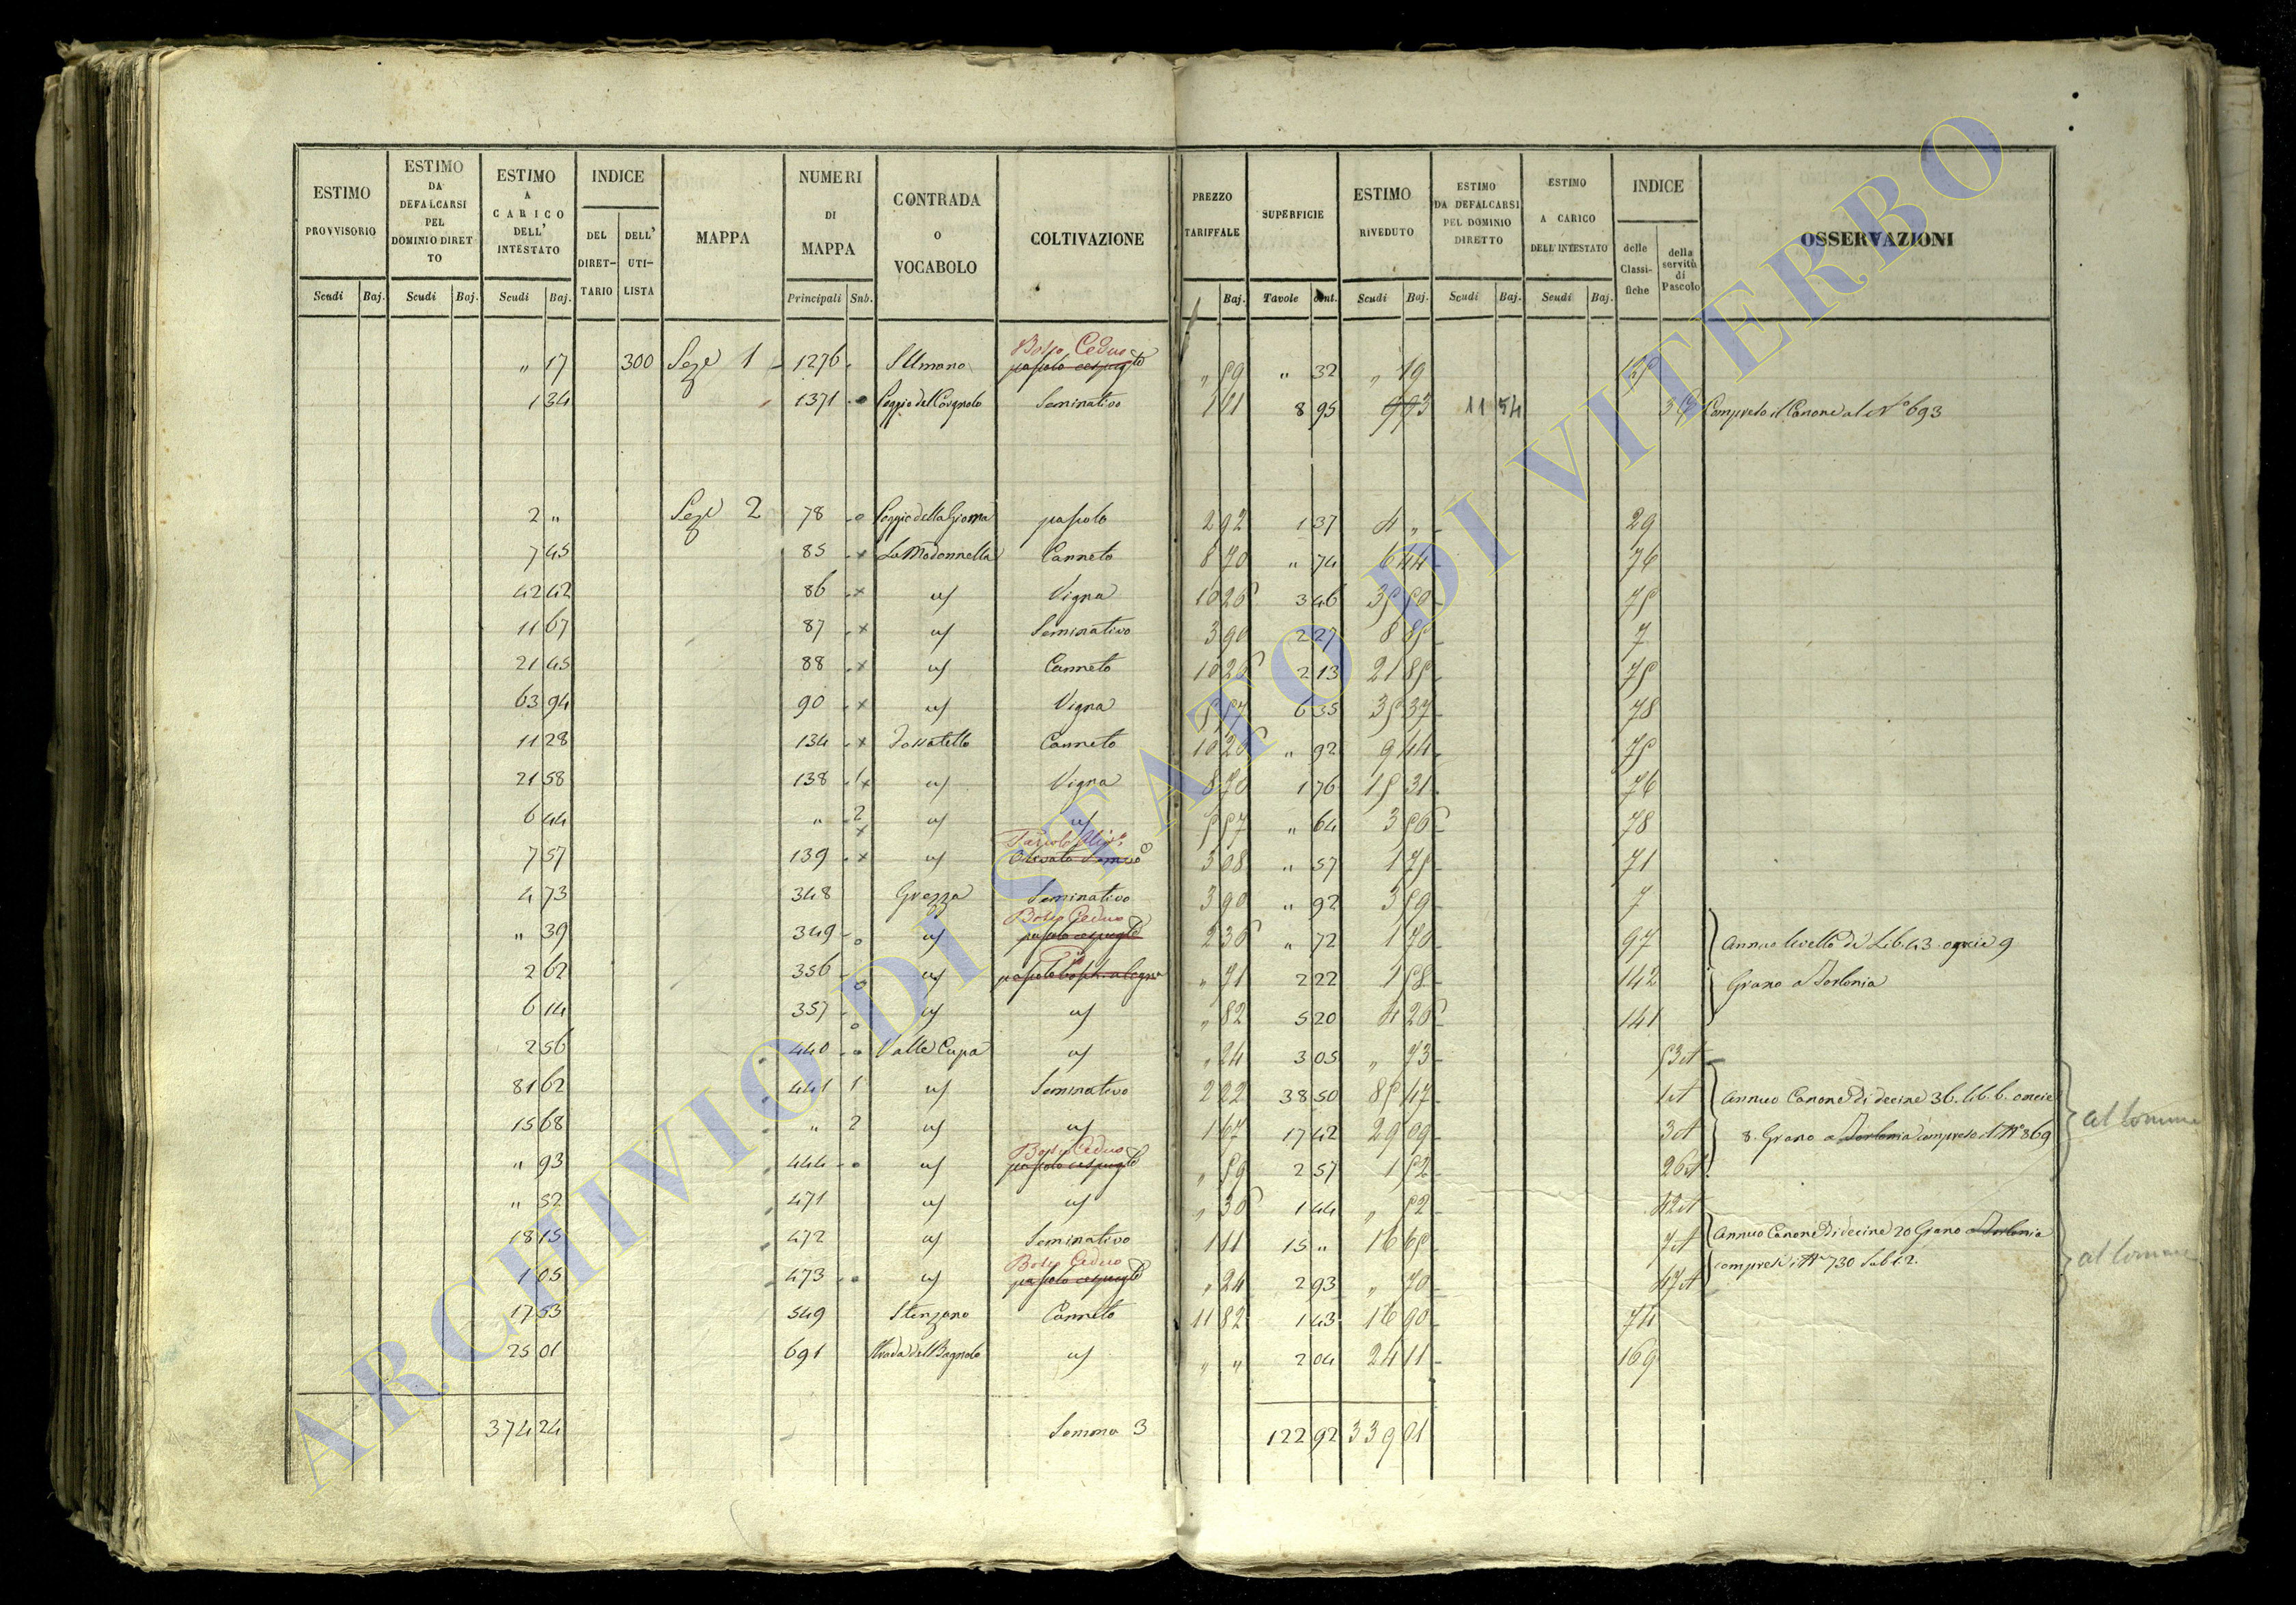 ESTIMO PROVVISORIO Scudi Baj.
ESTIMO DA DEFALCARSI PEL DOMINIO DIRETTO Scudi Baj.
ESTIMO A CARICO DELL' INTESTATO Scudi Baj.
INDICE DEL DIRET-TARIO DELL' UTI-LISTA
MAPPA
NUMERI DI MAPPA Principali Sub.
CONTRADA O VOCABOLO
COLTIVAZIONE
PREZZO TARIFFALE Baj.
SUPERFICIE Tavole Cent.
ESTIMO RIVEDUTO Scudi Baj.
ESTIMO DA DEFALCARSI PEL DOMINIO DIRETTO Scudi Baj.
ESTIMO A CARICO DELL'INTESTATO Scudi Baj.
INDICE delle Classi-fiche della servitù di Pascolo
OSSERVAZIONI
" 17 300 Seze 1 1276 Bosco Ceduo " 59 " 32 " 19
1 34 1371 Seminativo 1 11 8 95 9 93 11 54 Compreso il Canone al N° 693
2 " Seze 2 78 pascolo 2 92 1 37 4 " 29
7 45 85 x La Madonnella Canneto 8 70 " 74 6 44 76
42 42 86 x Vigna 10 26 3 46 35 50 75
11 67 87 x Seminativo 3 90 2 27 8 85 7
21 45 88 x Canneto 10 26 2 13 21 85 75
63 94 90 x Vigna 5 57 6 35 35 37 78
11 28 134 x Canneto 10 26 " 92 9 44 75
21 58 138 1 x Vigna 8 70 1 76 15 31 76
6 44 " 2 x 5 57 " 64 3 56 78
7 57 139 x 3 08 " 57 1 75 71
4 73 348 Grezza Seminativo 3 90 " 92 3 59 7
" 39 349 Bosco Ceduo 2 36 " 72 1 70 97 Annuo livello di Lib. 43 oncie 9
2 62 356 " 71 2 22 1 58 142 Grano a Torlonia
6 14 357 " 82 5 20 4 26 141
2 56 440 Valle Cupa " 24 3 05 " 73 53 A
81 62 441 1 Seminativo 2 22 38 50 85 47 1 A Annuo Canone di decine 36. lib. 6. oncie
15 68 " 2 1 67 17 42 29 09 3 A 8. Grano a Torlonia compreso il N° 869
al Comune
" 93 444 Bosco Ceduo " 59 2 57 1 52 26 A
" 52 471 " 36 1 44 " 52 42 A
18 15 472 Seminativo 1 11 15 " 16 65 7 A Annuo Canone di decine 20 Grano a Torlonia
1 05 473 Bosco Ceduo " 24 2 93 " 70 47 A compresi i N° 730 sub 1. 2.
al Comune
17 53 549 Stenzano Canneto 11 82 1 43 16 90 74
25 01 691 Strada del Bagnolo " " 2 04 24 11 169
374 24 Somma 3 122 92 339 01
ARCHIVIO DI STATO DI VITERBO